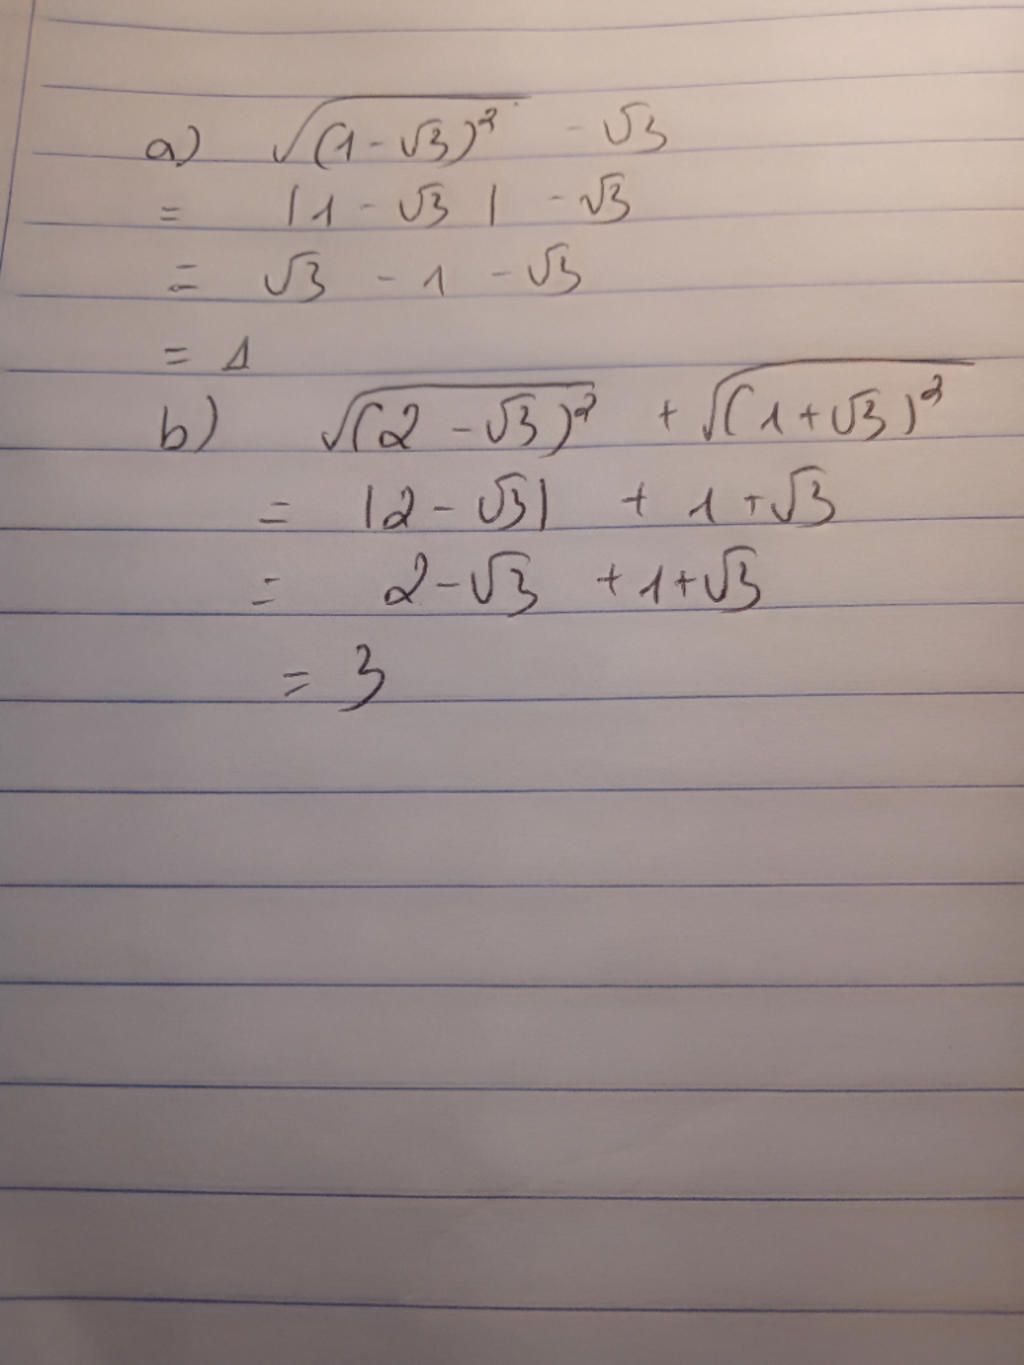 a) √(1-√3)² - √3
= |1-√3| - √3
= √3 - 1 - √3
= 1
b) √(2-√3)² + √(1+√3)²
= |2-√3| + 1+√3
= 2-√3 + 1+√3
= 3